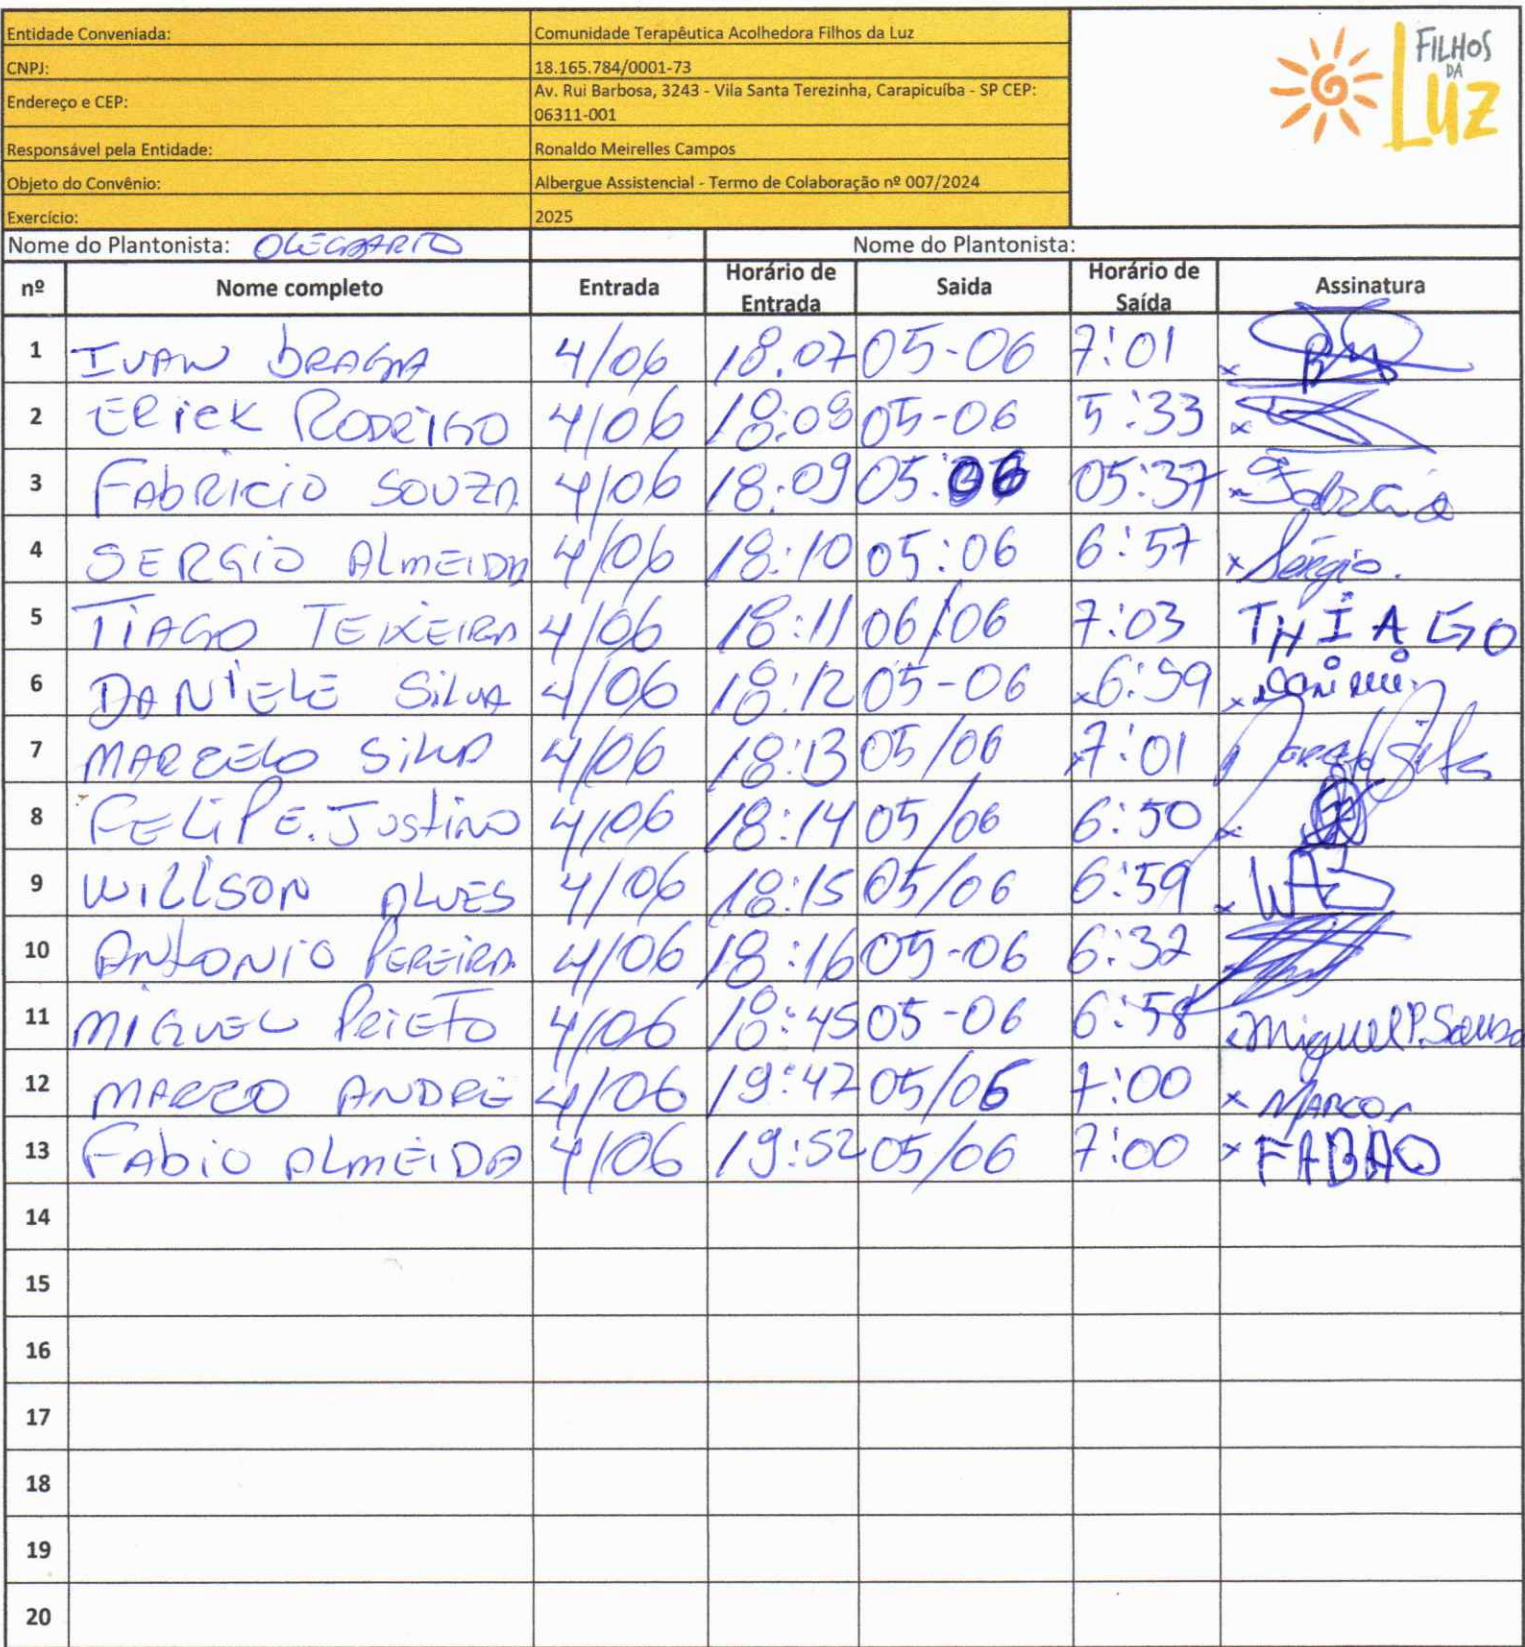 Entidade Conveniada: Comunidade Terapêutica Acolhedora Filhos da Luz
CNPJ: 18.165.784/0001-73
Endereço e CEP: Av. Rui Barbosa, 3243 - Vila Santa Terezinha, Carapicuíba - SP CEP: 06311-001
Responsável pela Entidade: Ronaldo Meirelles Campos
Objeto do Convênio: Albergue Assistencial - Termo de Colaboração nº 007/2024
Exercício: 2025
FILHOS DA LUZ
Nome do Plantonista: OLEGARIO Nome do Plantonista:
nº Nome completo Entrada Horário de Entrada Saida Horário de Saída Assinatura
1 IVAN BRAGA 4/06 18.07 05-06 7:01
2 ERICK RODRIGO 4/06 18:08 05-06 5:33
3 FABRICIO SOUZA 4/06 18:09 05:06 05:37 Fabrício
4 SERGIO ALMEIDA 4/06 18:10 05:06 6:57 x Sérgio.
5 TIAGO TEIXEIRA 4/06 18:11 06/06 7:03 THIAGO
6 DANIELE SILVA 4/06 18:12 05-06 x6:59 x
7 MARCELO SILVA 4/06 18:13 05/06 7:01
8 FELIPE. JUSTINO 4/06 18:14 05/06 6:50 x
9 WILLSON ALVES 4/06 18:15 05/06 6:59 x
10 ANTONIO PEREIRA 4/06 18:16 05-06 6:32
11 MIGUEL PRIETO 4/06 18:45 05-06 6:58 Miguel P. Sousa
12 MARCO ANDRE 4/06 19:47 05/06 7:00 x MARCOS
13 FABIO ALMEIDA 4/06 19:52 05/06 7:00 x FABAO
14
15
16
17
18
19
20